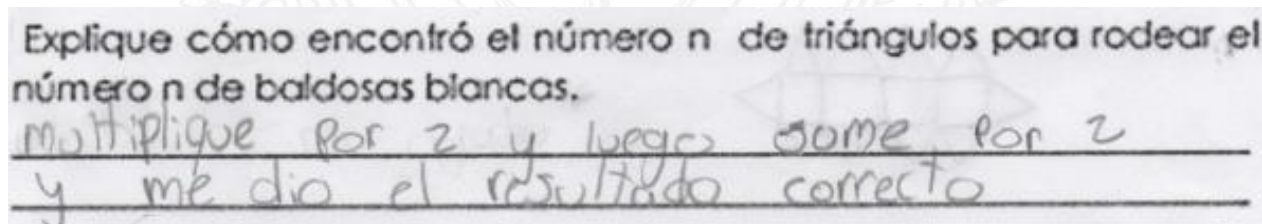 Explique cómo encontró el número n de triángulos para rodear el
número n de baldosas blancas.
multiplique por 2 y luego some por 2
y me dio el resultado correcto